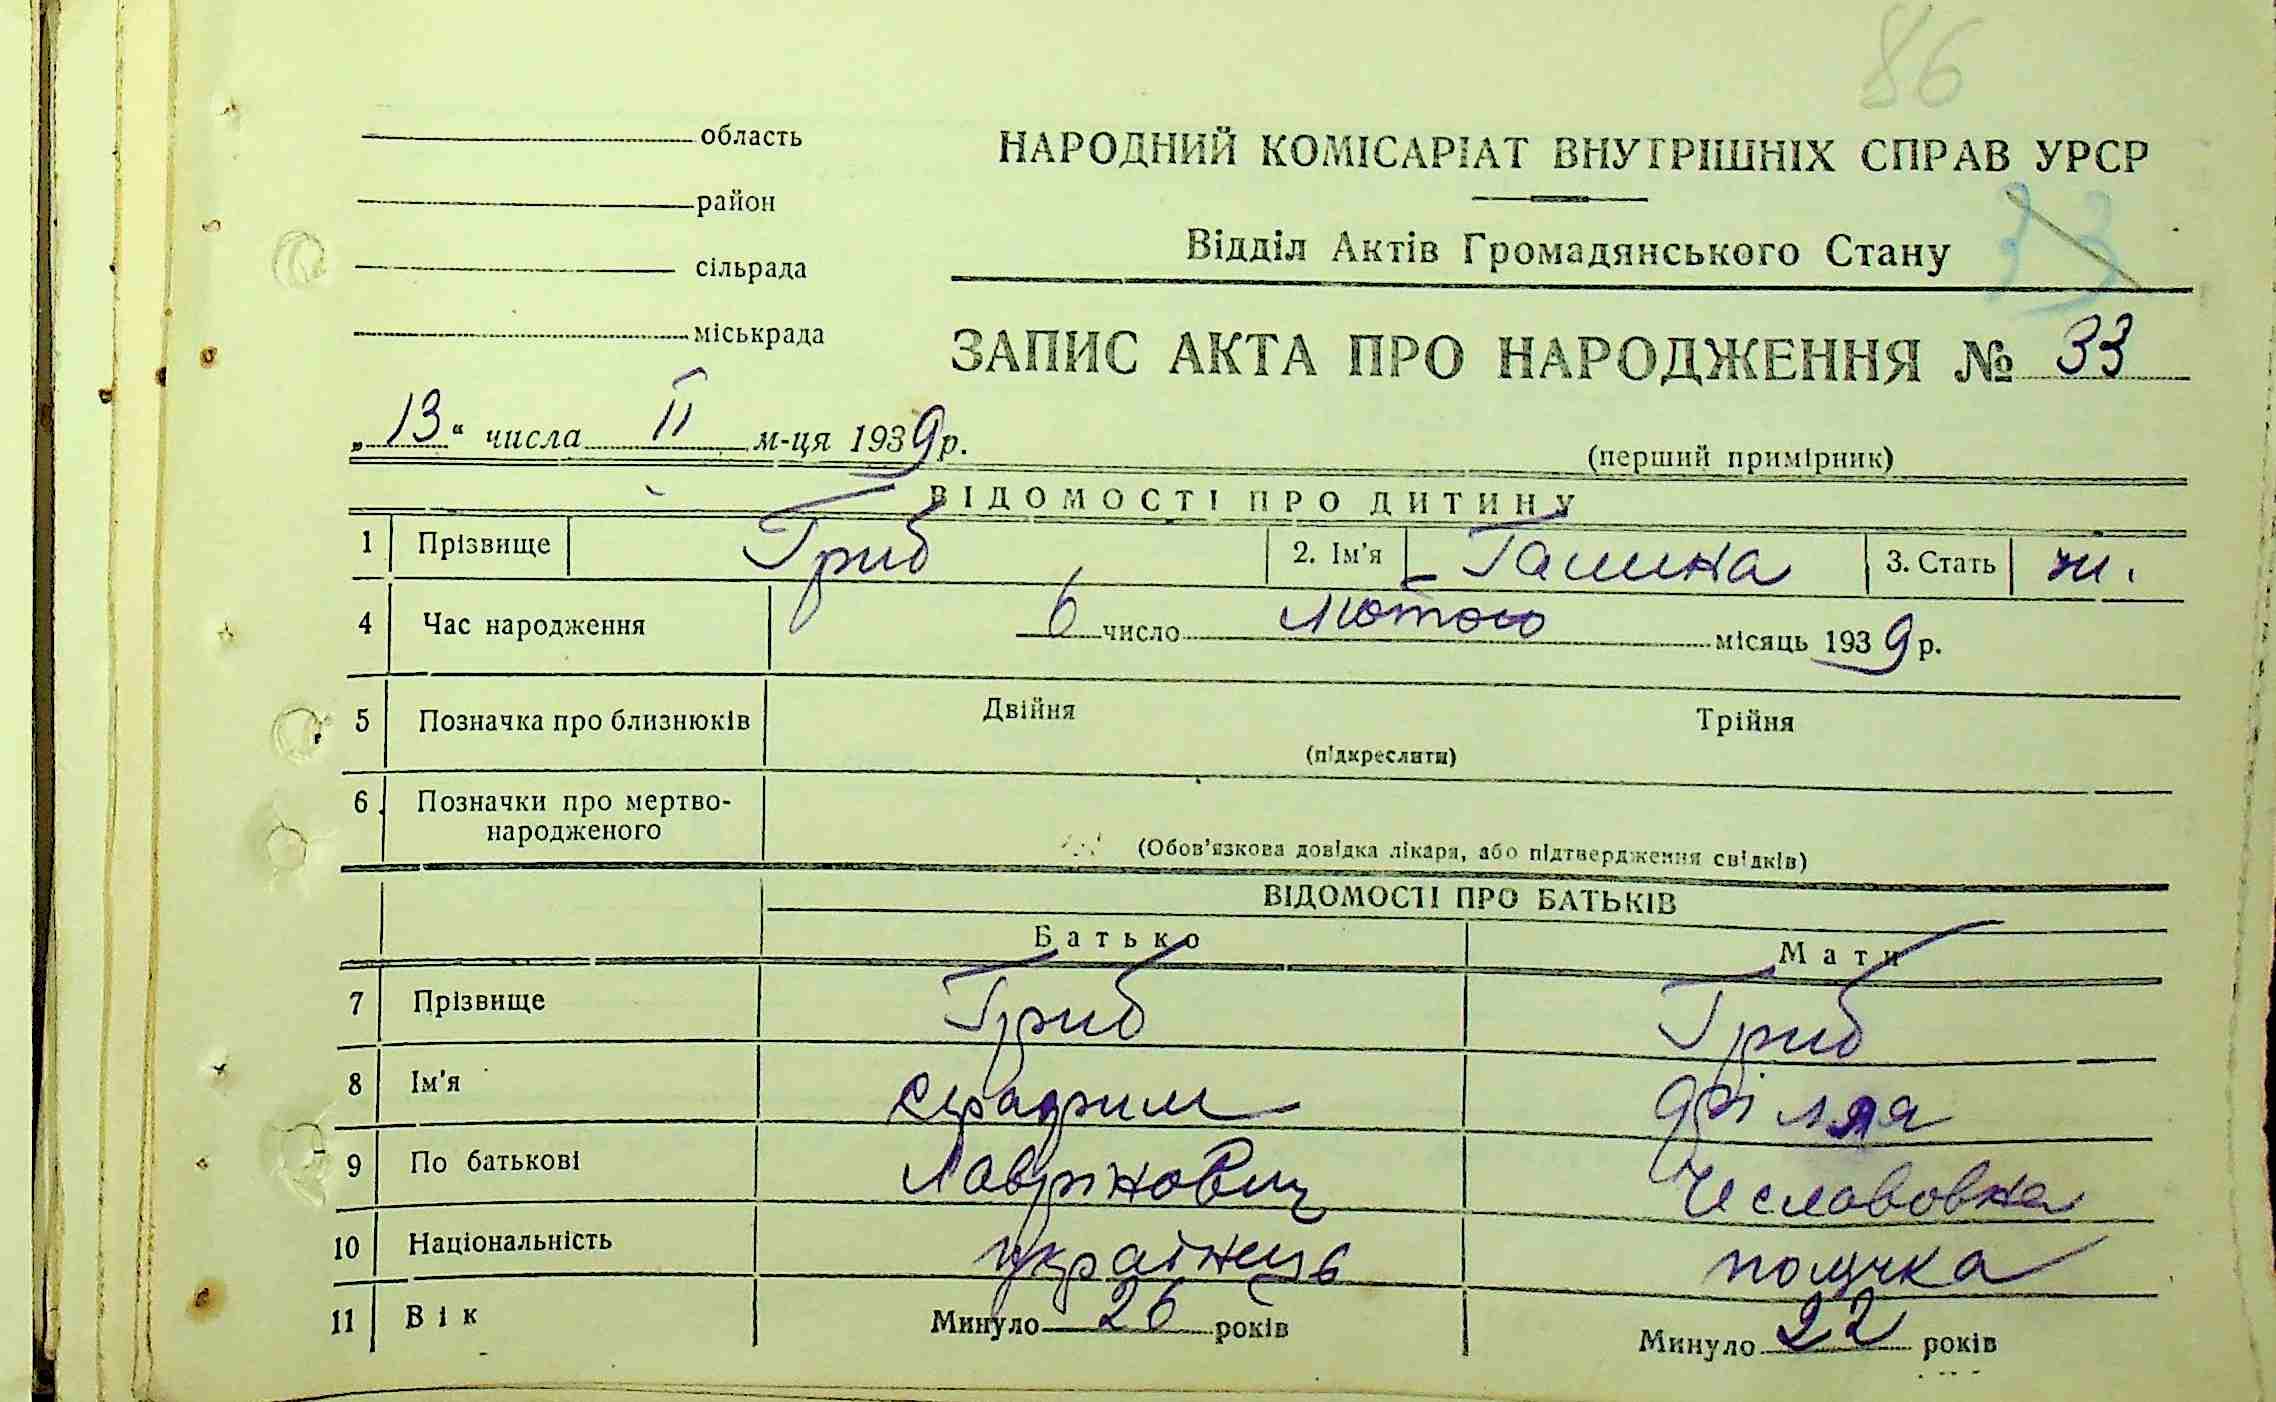 86
область
НАРОДНИЙ КОМІСАРІАТ ВНУТРІШНІХ СПРАВ УРСР
район
Відділ Актів Громадянського Стану 33
сільрада
міськрада
ЗАПИС АКТА ПРО НАРОДЖЕННЯ № 33
„13“ числа II м-ця 1939 р.
(перший примірник)
ВІДОМОСТІ ПРО ДИТИНУ
1 Прізвище Гриб 2. Ім'я Галина 3. Стать ж.
4 Час народження 6 число лютого місяць 1939 р.
5 Позначка про близнюків Двійня Трійня
(підкреслити)
6 Позначки про мертво-
народженого
(Обов'язкова довідка лікаря, або підтвердження свідків)
ВІДОМОСТІ ПРО БАТЬКІВ
Батько Мати
7 Прізвище Гриб Гриб
8 Ім'я
9 По батькові Лаврінович Чеславовна
10 Національність українець полячка
11 Вік Минуло 26 років Минуло 22 років